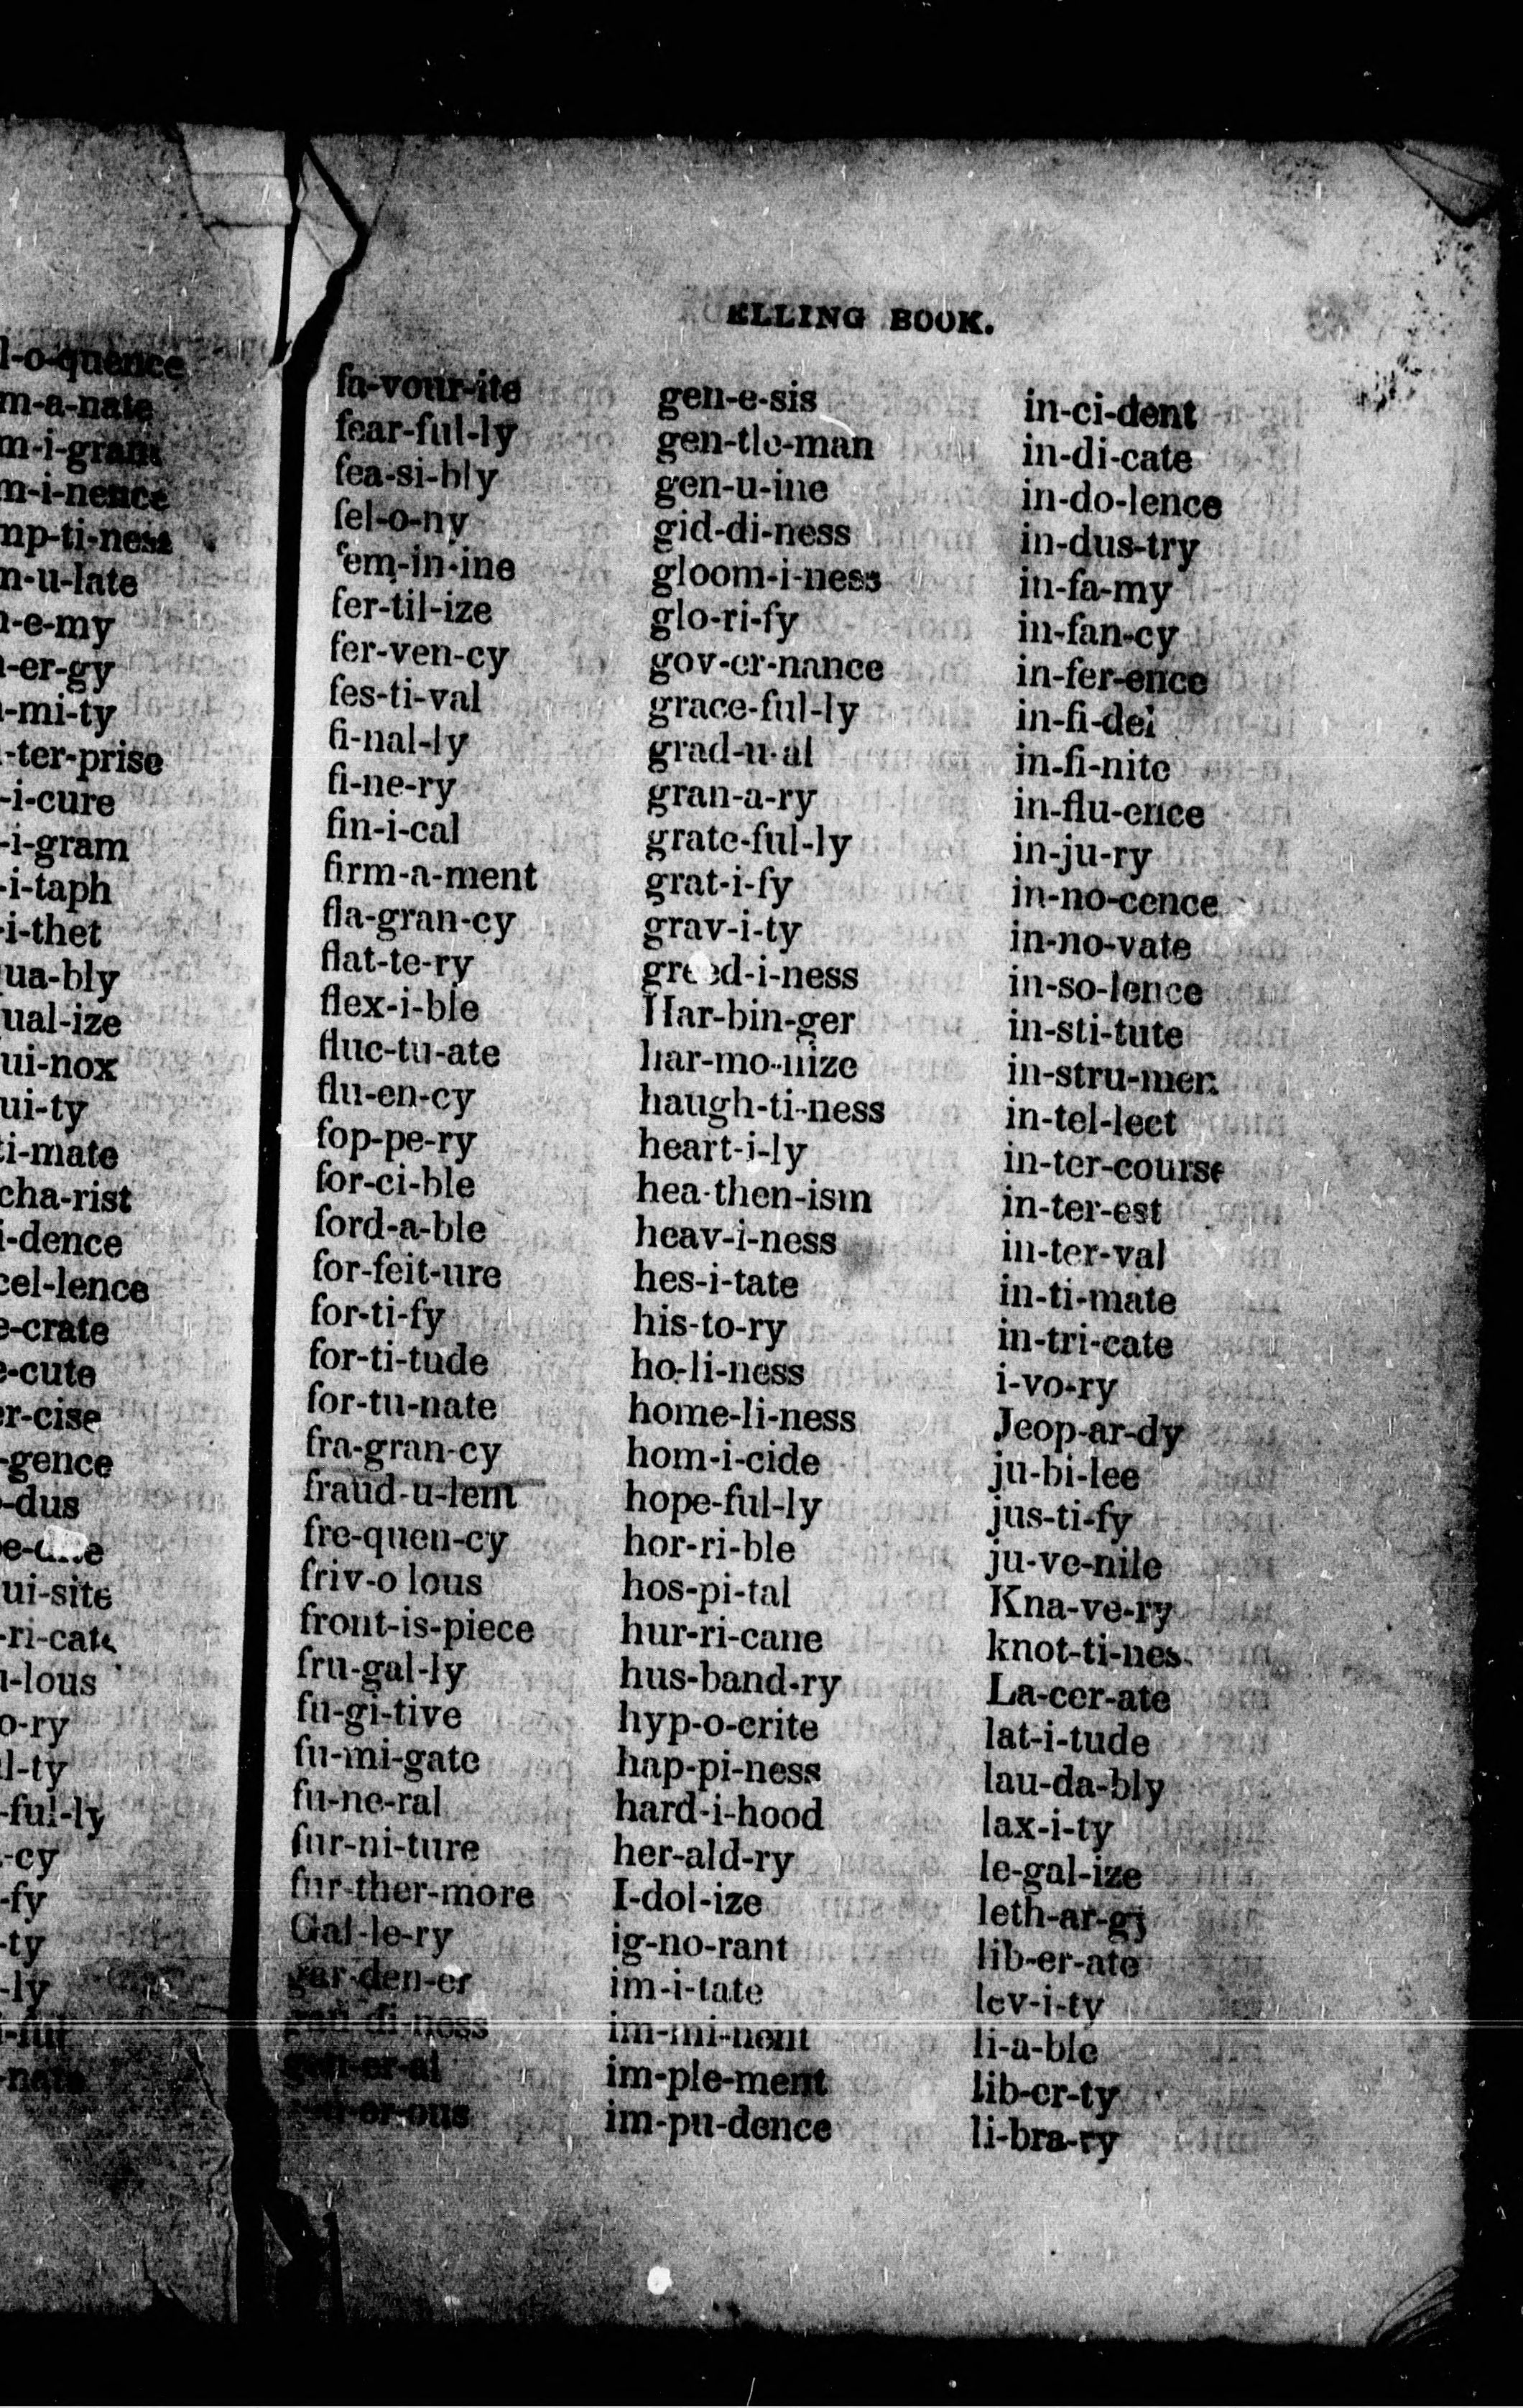 ELLING BOOK.
l-o-quence
m-a-nate
m-i-grant
m-i-nence
mp-ti-ness
m-u-late
n-e-my
n-er-gy
-mi-ty
-ter-prise
-i-cure
-i-gram
-i-taph
-i-thet
ua-bly
ual-ize
ui-nox
ui-ty
ti-mate
cha-rist
i-dence
cel-lence
e-crate
e-cute
er-cise
-gence
-dus
ui-site
-ri-cate
u-lous
o-ry
l-ty
-ful-ly
-cy
-fy
-ty
-ly
i-ful
-nate
fa-vour-ite
fear-ful-ly
fea-si-bly
fel-o-ny
fem-in-ine
fer-til-ize
fer-ven-cy
fes-ti-val
fi-nal-ly
fi-ne-ry
fin-i-cal
firm-a-ment
fla-gran-cy
flat-te-ry
flex-i-ble
fluc-tu-ate
flu-en-cy
fop-pe-ry
for-ci-ble
ford-a-ble
for-feit-ure
for-ti-fy
for-ti-tude
for-tu-nate
fra-gran-cy
fraud-u-lent
fre-quen-cy
friv-o lous
front-is-piece
fru-gal-ly
fu-gi-tive
fu-mi-gate
fu-ne-ral
fur-ni-ture
fur-ther-more
Gal-le-ry
gar-den-er
gau-di-ness
gen-er-al
gen-er-ous
gen-e-sis
gen-tle-man
gen-u-ine
gid-di-ness
gloom-i-ness
glo-ri-fy
gov-er-nance
grace-ful-ly
grad-u-al
gran-a-ry
grate-ful-ly
grat-i-fy
grav-i-ty
greed-i-ness
Har-bin-ger
har-mo-nize
haugh-ti-ness
heart-i-ly
hea-then-ism
heav-i-ness
hes-i-tate
his-to-ry
ho-li-ness
home-li-ness
hom-i-cide
hope-ful-ly
hor-ri-ble
hos-pi-tal
hur-ri-cane
hus-band-ry
hyp-o-crite
hap-pi-ness
hard-i-hood
her-ald-ry
I-dol-ize
ig-no-rant
im-i-tate
im-mi-nent
im-ple-ment
im-pu-dence
in-ci-dent
in-di-cate
in-do-lence
in-dus-try
in-fa-my
in-fan-cy
in-fer-ence
in-fi-del
in-fi-nite
in-flu-ence
in-ju-ry
in-no-cence
in-no-vate
in-so-lence
in-sti-tute
in-stru-men
in-tel-lect
in-ter-course
in-ter-est
in-ter-val
in-ti-mate
in-tri-cate
i-vo-ry
Jeop-ar-dy
ju-bi-lee
jus-ti-fy
ju-ve-nile
Kna-ve-ry
knot-ti-nes
La-cer-ate
lat-i-tude
lau-da-bly
lax-i-ty
le-gal-ize
leth-ar-gy
lib-er-ate
lev-i-ty
li-a-ble
lib-er-ty
li-bra-ry